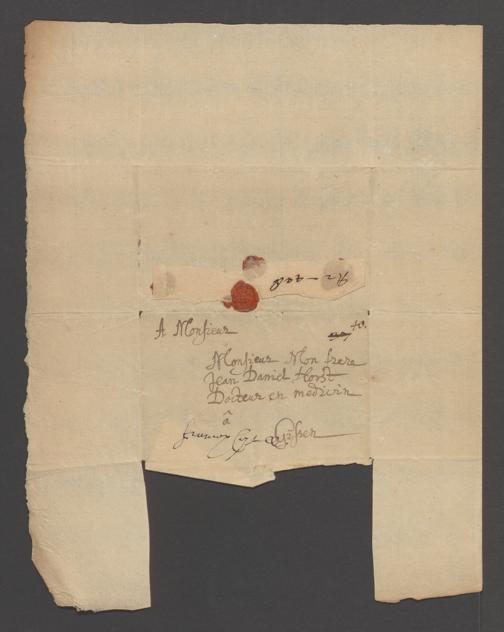 A Monsieur
Monsieur Mon frere
Jean Daniel Horst
Docteur en medicin
â